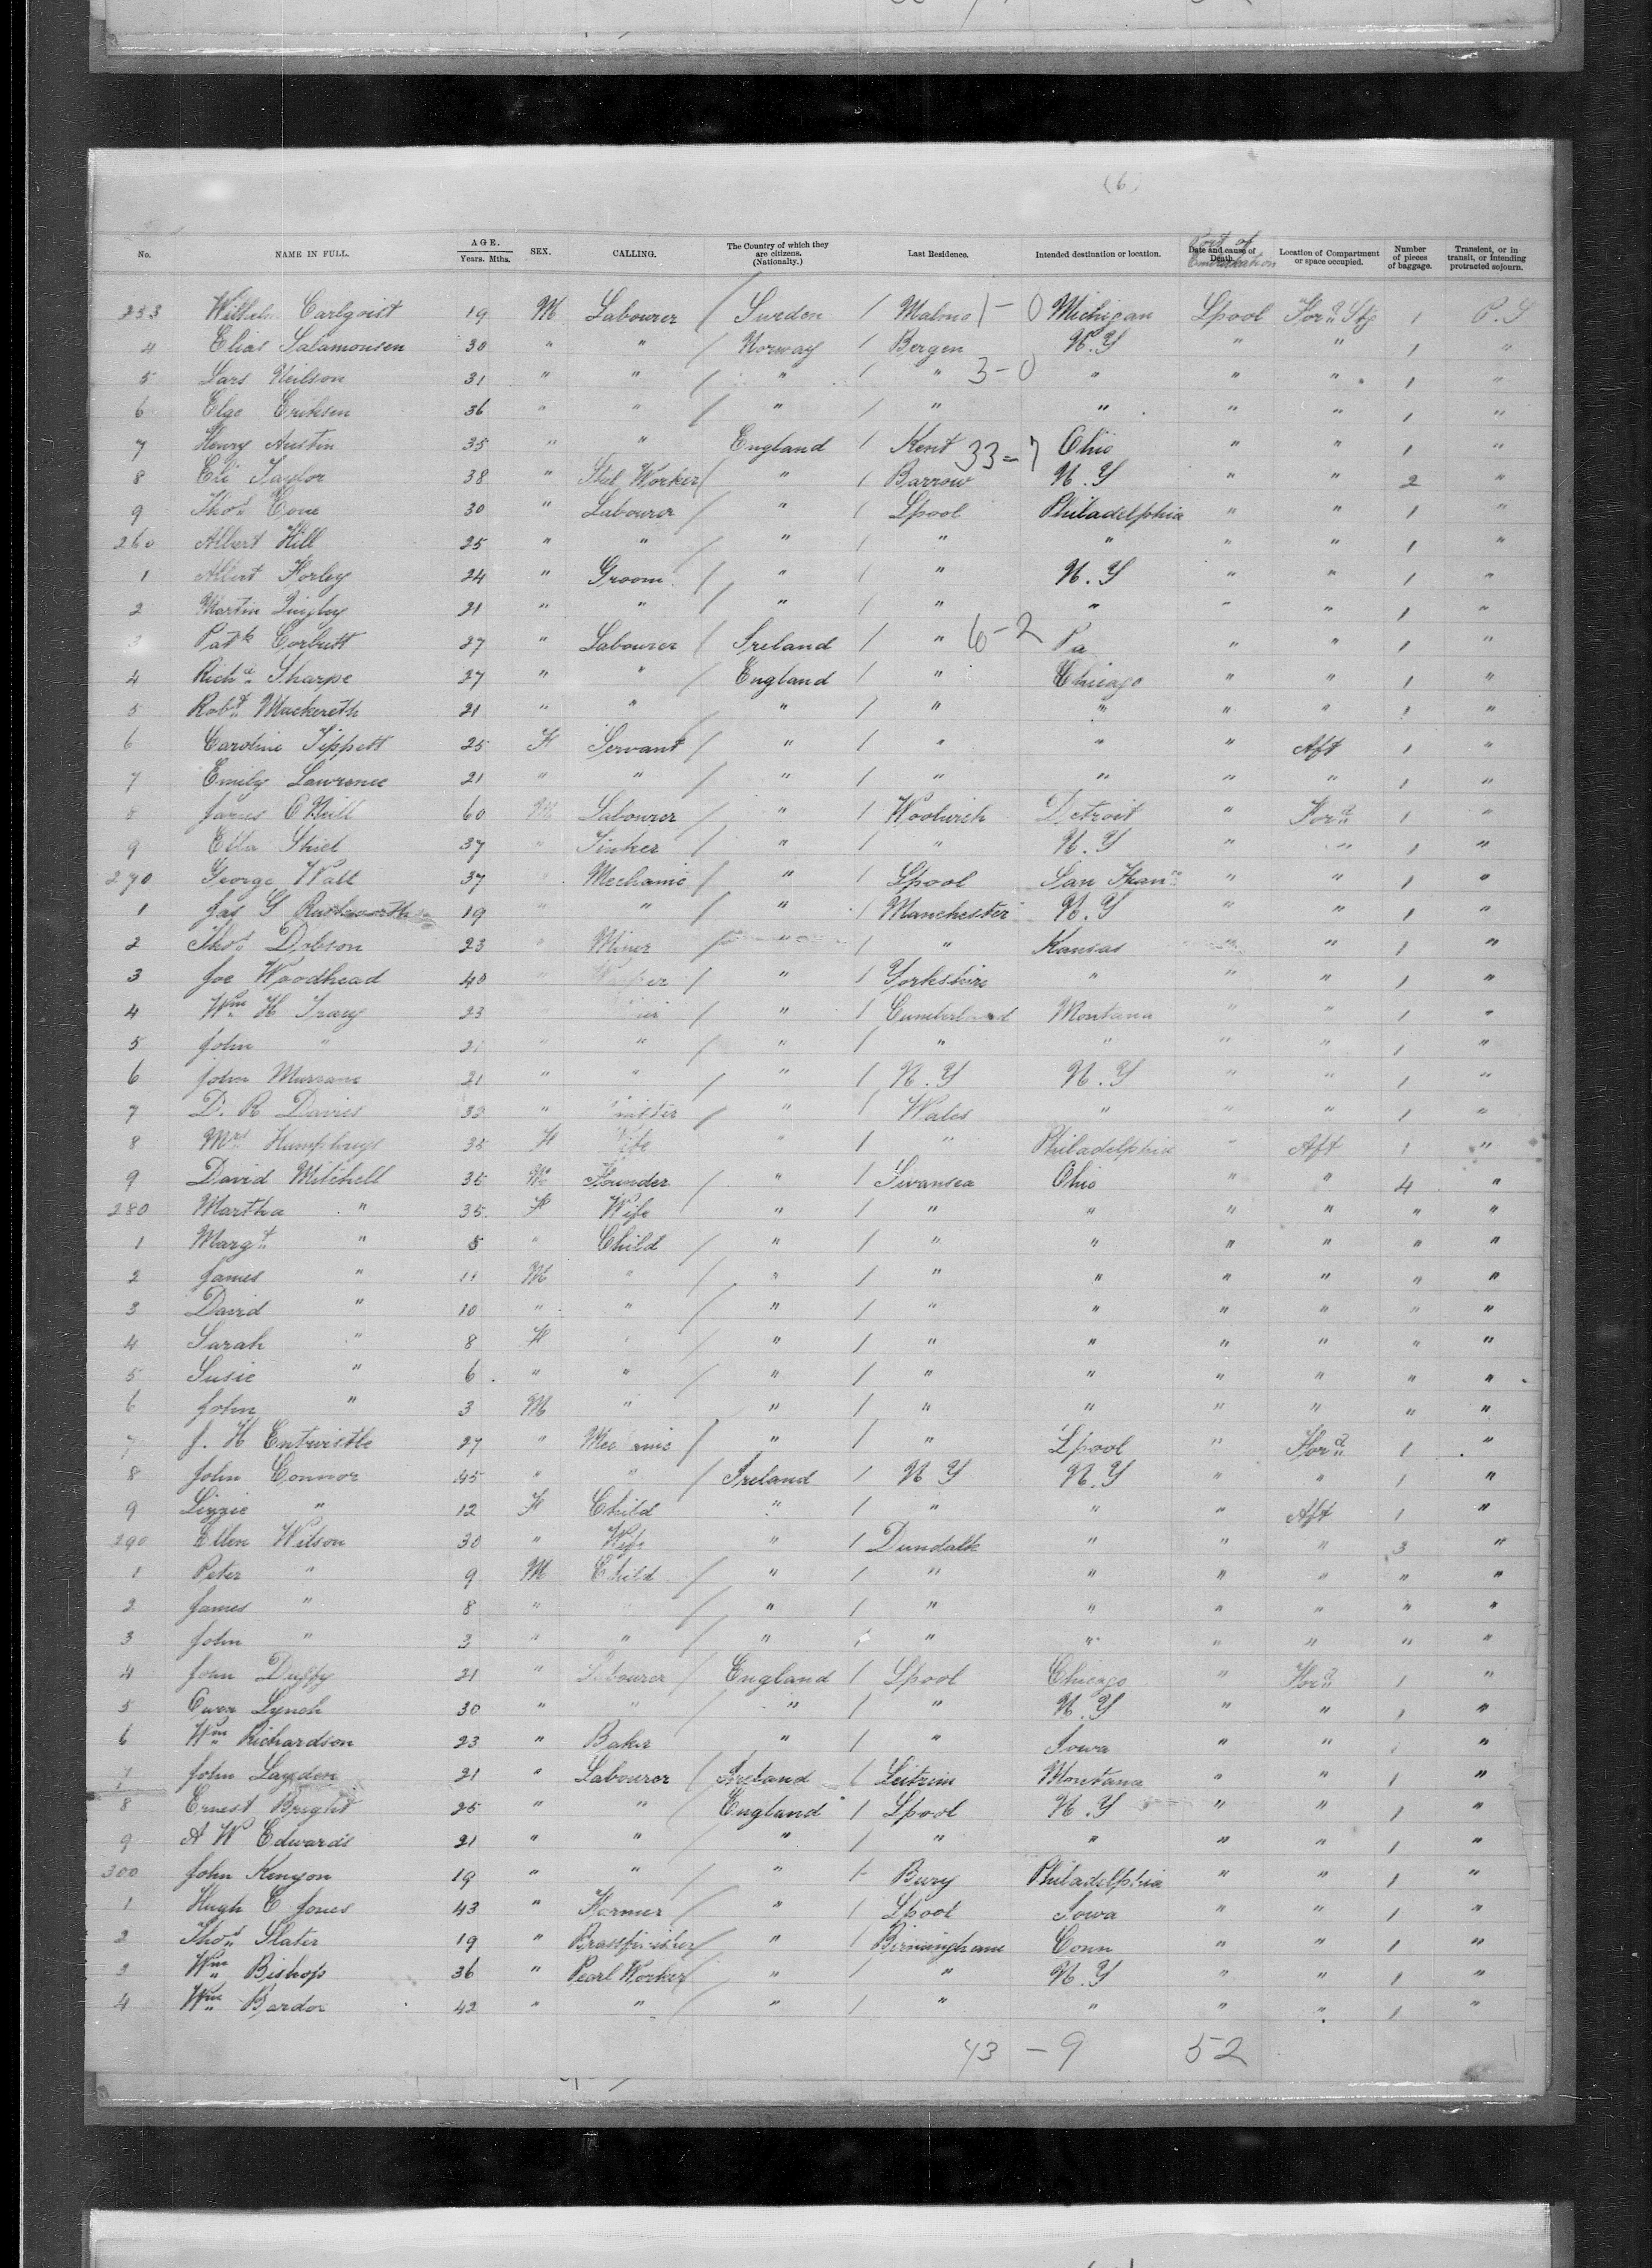 (6)
No. NAME IN FULL. AGE. Years. Mths. SEX. CALLING. The Country of which they are citizens. (Nationalty.) Last Residence. Intended destination or location. Date and cause of Death. Port of Embarkation Location of Compartment or space occupied. Number of pieces of baggage. Transient, or in transit, or intending protracted sojourn.
253 Wilhelm Carlqvist 19 M Labourer / Sweden / Malmo 1 - 0 Michigan Lpool For'd Stg 1 P.S
4 Elias Salamonsen 30 " " / Norway / Bergen N.Y " " 1 "
5 Lars Neilson 31 " " / " / " 3 - 0 " " " 1 "
6 Elge Eriksen 36 " " / " / " " " " 1 "
7 Henry Austin 35 " " England / Kent 33 = 7 Ohio " " 1 "
8 Eli Taylor 38 " Steel Worker / " / Barrow N.Y " " 2 "
9 Thos Cone 30 " Labourer / " / Lpool Philadelphia " " 1 "
260 Albert Hill 25 " " / " / " " " " 1 "
1 Albert Horley 24 " Groom / " / " N.Y " " 1 "
2 Martin Quigley 21 " " / " / " " " " 1 "
3 Patk Corbett 27 " Labourer / Ireland / " 6 - 2 Pa " " 1 "
4 Richd Sharpe 27 " " / England / " Chicago " " 1 "
5 Robt Mackereth 21 " " " / " " " " 1 "
6 Caroline Tippett 25 F Servant / " / " " " Aft 1 "
7 Emily Lawrence 21 " " / " / " " " " 1 "
8 James O'Neill 60 M Labourer / " / Woolwich Detroit " For'd 1 "
9 Ella Shiel 37 " Tinker / " / " N.Y " " 1 "
270 George Watt 37 " Mechanic / " / Lpool San Fran " " 1 "
1 Jas G Rushworth 19 " " / " / Manchester N.Y " " 1 "
2 Thos Dobson 23 " Miner / " / " Kansas " " 1 "
3 Joe Woodhead 40 " / " / Yorkshire " " " 1 "
4 Wm H Tracy 23 " / " / Cumberland Montana " " 1 "
5 John " 21 " " / " / " " " " 1 "
6 John Murrane 21 " " / " / N.Y N.Y " " 1 "
7 D. R Davies 32 " / " / Wales " " " 1 "
8 Mrs Humphreys 35 F Wife " / " Philadelphia " Aft 1 "
9 David Mitchell 35 M Founder / " / Swansea Ohio " " 4 "
280 Martha " 35 F Wife / " / " " " " " "
1 Margt " 5 " Child / " / " " " " " "
2 James " 11 M " / " / " " " " " "
3 David " 10 " " / " / " " " " " "
4 Sarah " 8 F / " / " " " " " "
5 Susie " 6 " " / " / " " " " " "
6 John " 3 M " / " / " " " " " "
7 J. H Entwistle 27 " Mechanic / " / " Lpool " For'd 1 "
8 John Connor 45 " " / Ireland / N Y N.Y " " 1 "
9 Lizzie " 12 F Child " / " " " Aft 1 "
290 Ellen Wilson 30 " Wife " / Dundalk " " " 3 "
1 Peter " 9 M Child / " / " " " " " "
2 James " 8 " / " / " " " " " "
3 John " 3 " " / " / " " " " " "
4 John Duffy 21 " Labourer / England / Lpool Chicago " For'd 1 "
5 Owen Lynch 30 " " / " / " N.Y " " 1 "
6 Wm Richardson 23 " Baker " / " Iowa " " 1 "
7 John Layden 21 " Labourer / Ireland / Leitrim Montana " " 1 "
8 Ernest Bright 25 " " / England / Lpool N.Y " " 1 "
9 A W Edwards 21 " " / " / " " " " 1 "
300 John Kenyon 19 " " / " / Bury Philadelphia " " 1 "
1 Hugh E Jones 43 " Farmer / " / Lpool Iowa " " 1 "
2 Thos Slater 19 " Brassfinisher / " / Birmingham Conn " " 1 "
3 Wm Bishop 36 " Pearl Worker / " / " N.Y " " 1 "
4 Wm Bardoe 42 " " / " / " " " " 1 "
43 - 9 52